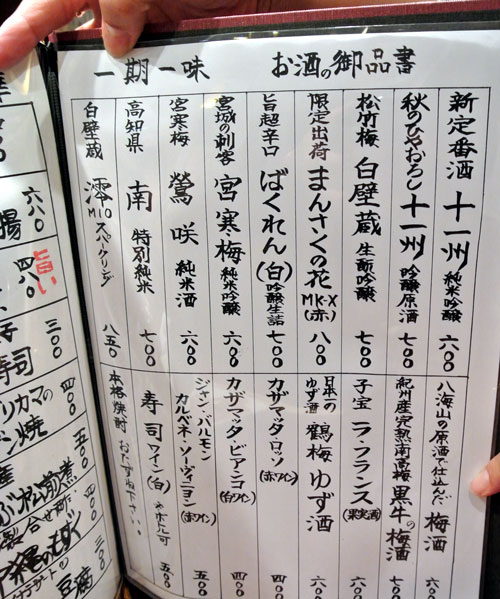 お酒の御品書
一期一味
新定番酒 十一州 純米吟醸 六〇〇
秋のひやおろし 十一州 吟醸原酒 七〇〇
松竹梅 白壁蔵 生酛吟醸 七〇〇
限定出荷 まんさくの花 MK-X(赤) 八〇〇
旨超辛口 ばくれん(白) 吟醸生詰 七〇〇
宮城の刺客 宮寒梅 純米吟醸 六〇〇
宮寒梅 鶯咲 純米酒 六〇〇
高知県 南 特別純米 七〇〇
白壁蔵 澪 MIO スパークリング 八五〇
八海山の原酒で仕込んだ 梅酒 六〇〇
紀州産完熟南高梅 黒牛の梅酒 七〇〇
子宝 ラ・フランス(果実酒) 六〇〇
日本一のゆず酒 鶴梅 ゆず酒 六〇〇
カザマッタ・ロッソ(赤ワイン) 四〇〇
カザマッタ・ビアンコ(白ワイン) 四〇〇
ジャン・バルモン カルベネ・ソーヴィニヨン(赤ワイン) 五〇〇
寿司ワイン(白) ※ボトル可 五〇〇
本格焼酎 おたずね下さい。
六八〇
腸 四八〇
旨い
三〇〇
寿司 四〇〇
リカマの
焼 五〇〇
松前煮
製合せ
もずく
豆腐 三〇〇